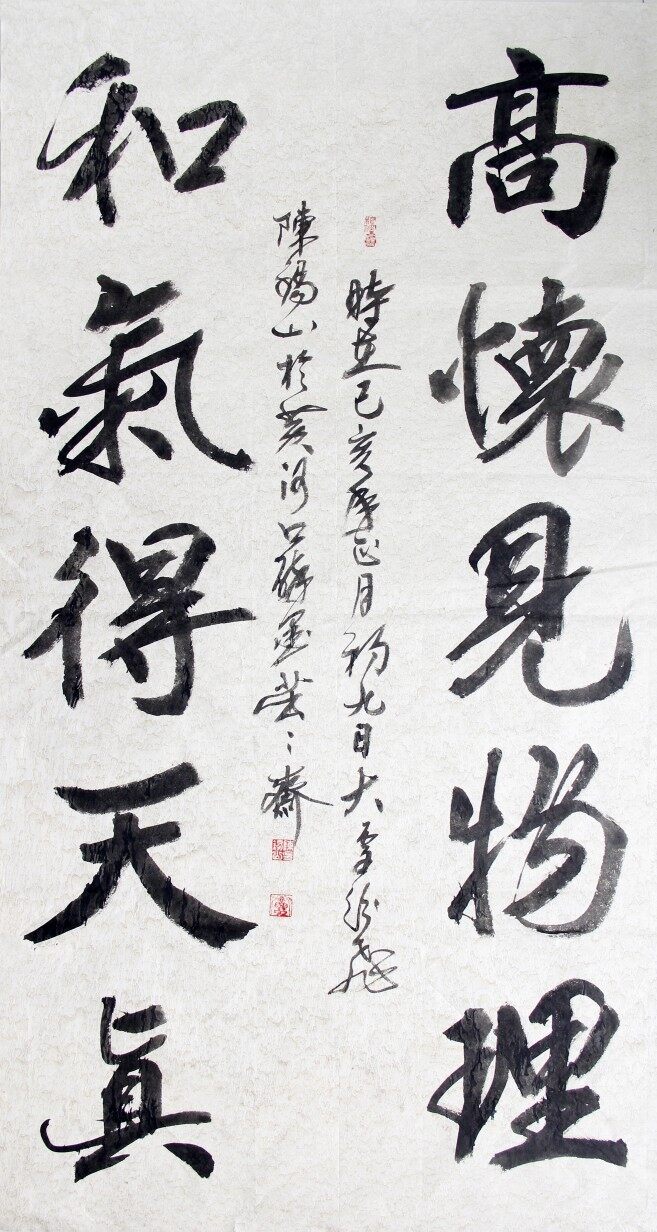 高懷見物理
時在己亥年正月初九日大雪紛飛
陳錫山於黄河口醉墨芸々齋
和氣得天真